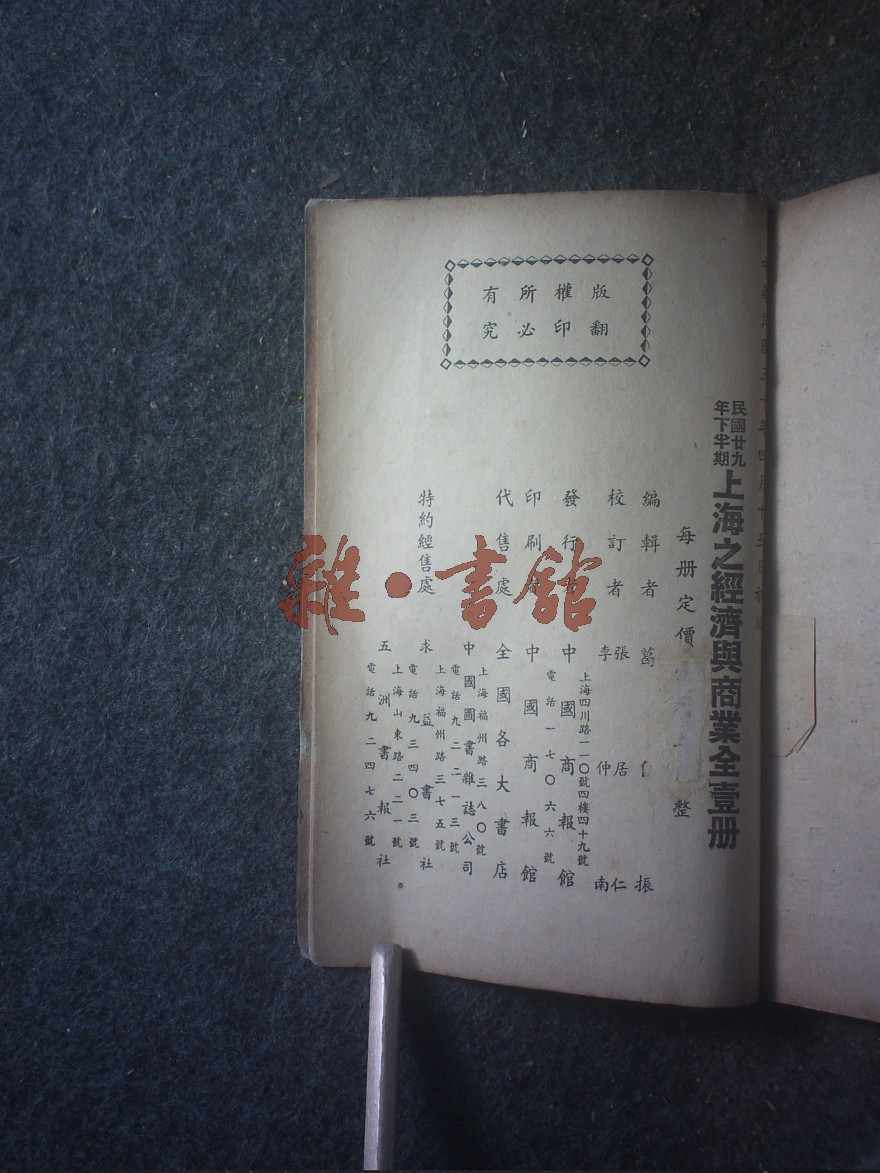 版權所有
翻印必究
民國廿九年下半期
上海之經濟與商業全壹册
每册定價
整
編輯者 葛 振
校訂者 張居仁
李仲南
發行者 中國商報館
上海四川路一一〇號四樓四十九號
電話一七〇六六號
印刷者 中國商報館
代售處 全國各大書店
特約經售處
中國圖書雜誌公司
上海福州路三八〇號
電話九二二一三號
求益書社
上海福州路三七五號
電話九三四〇三號
五洲書報社
上海山東路二二一號
電話九二四七六號
雜·書館